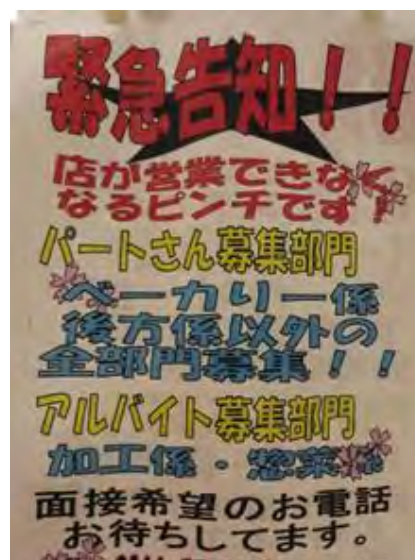 緊急告知！！
店が営業できなく
なるピンチです！
パートさん募集部門
ベーカリー係
後方係以外の
全部門募集！！
アルバイト募集部門
加工係・惣菜係
面接希望のお電話
お待ちしてます。